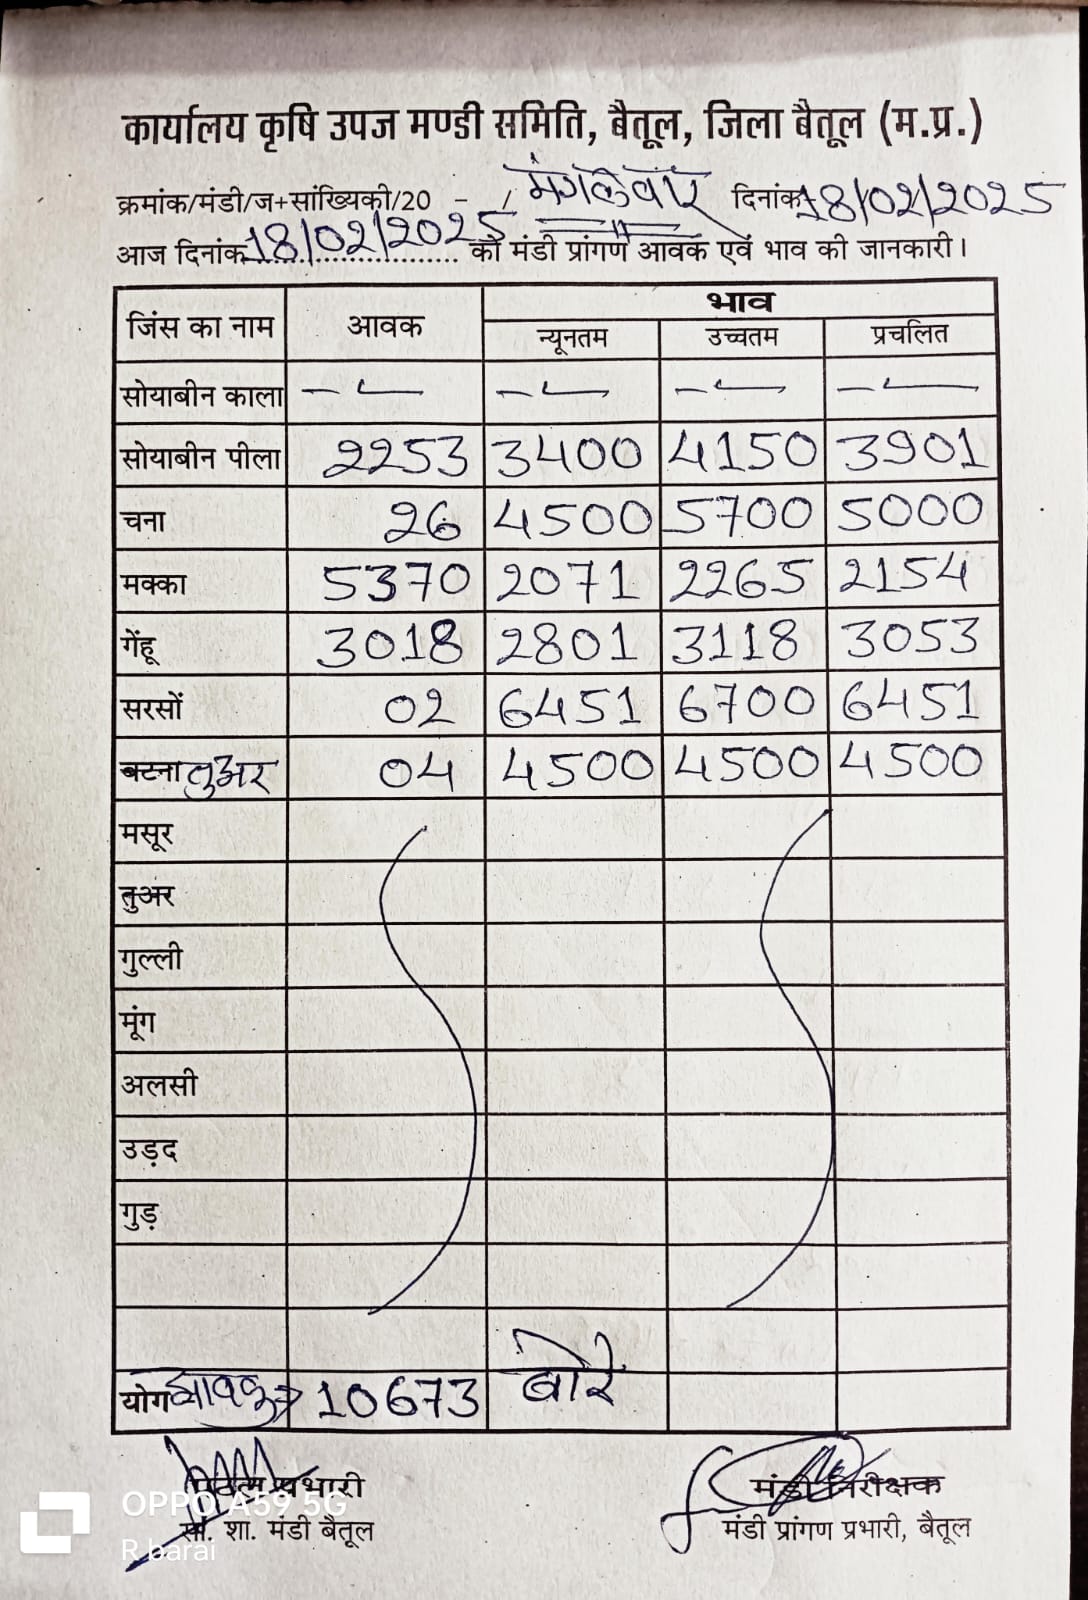 कार्यालय कृषि उपज मण्डी समिति, बैतूल, जिला बैतूल (म.प्र.)
क्रमांक/मंडी/ज+सांख्यिकी/20 - / मंगलवार दिनांक 18/02/2025
आज दिनांक 18/02/2025 को मंडी प्रांगण आवक एवं भाव की जानकारी।
जिंस का नाम आवक भाव
न्यूनतम उच्चतम प्रचलित
सोयाबीन काला - - - -
सोयाबीन पीला 2253 3400 4150 3901
चना 26 4500 5700 5000
मक्का 5370 2071 2265 2154
गेंहू 3018 2801 3118 3053
सरसों 02 6451 6700 6451
बटना तुअर 04 4500 4500 4500
मसूर
तुअर
गुल्ली
मूंग
अलसी
उड़द
गुड़
योग आवक → 10673 बोरे
प्रभारी मंडी निरीक्षक
सां. शा. मंडी बैतूल मंडी प्रांगण प्रभारी, बैतूल
OPPO A59 5G
R barai